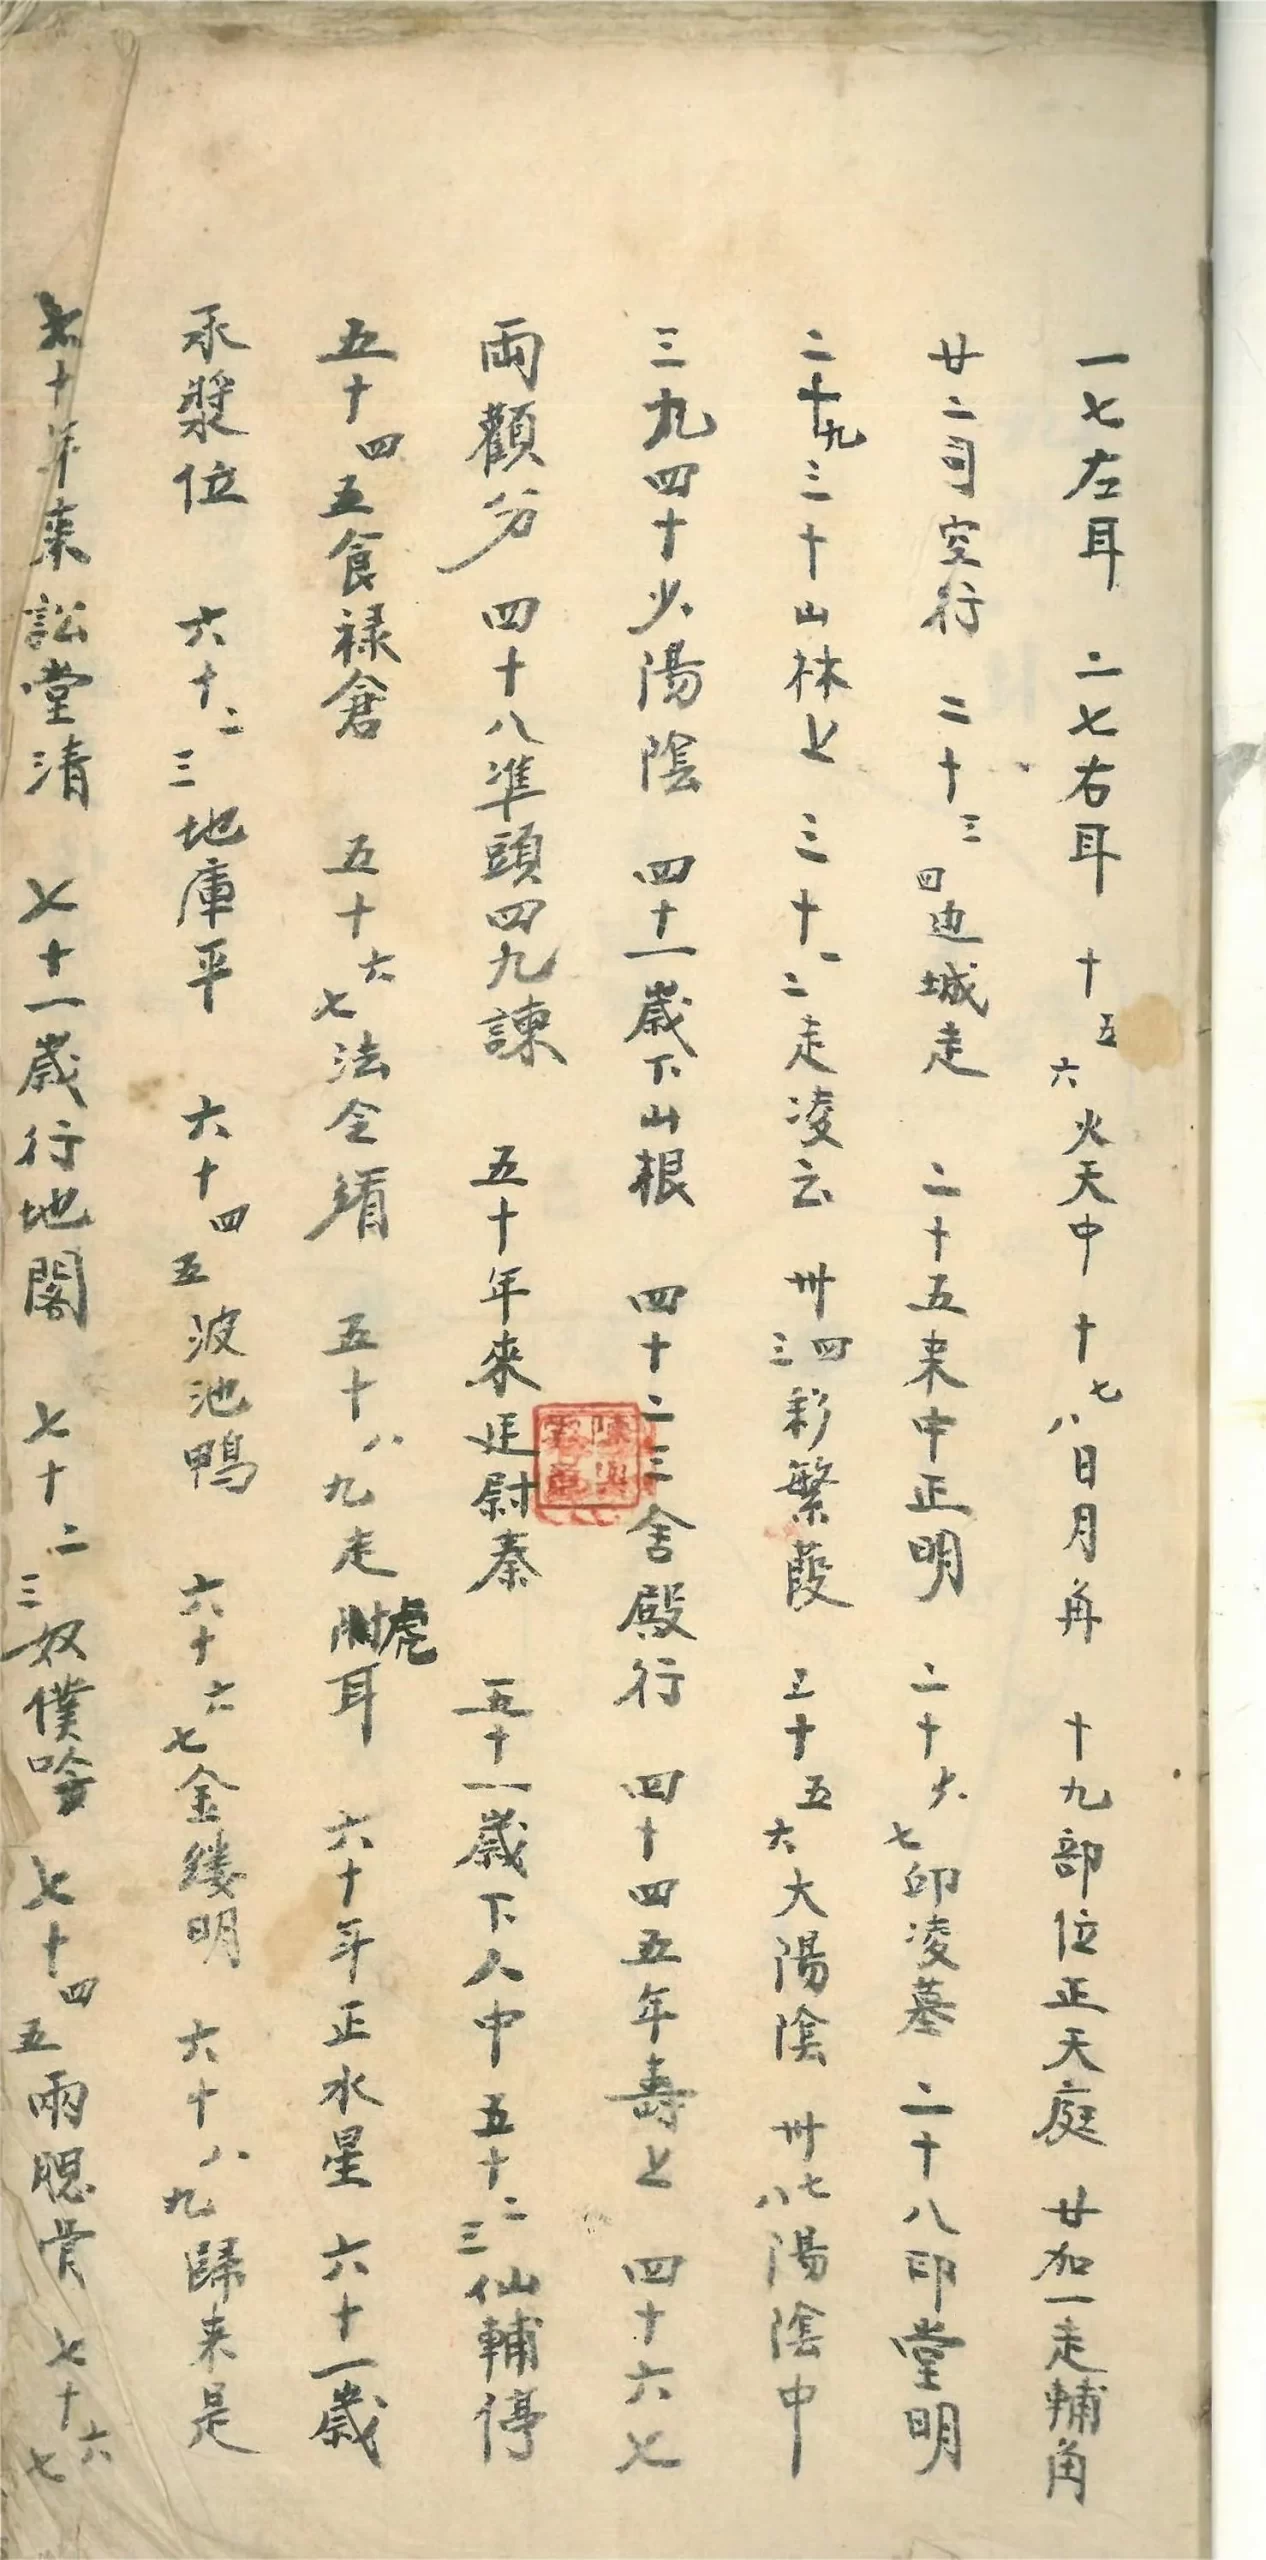 一七左耳 二七右耳 十五六火天中 十七八日月角 十九部位正天庭 廿加一走輔角
廿二司空行 二十三四边城走 二十五来中正明 二十六七印凌墓 二十八印堂明
二十九三十山林上 三十一二走凌云 卅三四彩繁葭 三十五六大陽陰 卅七八陽陰中
三九四十少陽陰 四十一歲下山根 四十二三舍殿行 四十四五年壽上 四十六七
両顴分 四十八準頭四九諫 五十年來廷尉秦 五十一歲下人中 五十二三仙輔停
五十四五食禄倉 五十六七法令 五十八九走虎耳 六十年正水星 六十一歲
承漿位 六十二三地庫平 六十四五波池鴨 六十六七金缕明 六十八九歸来是
七十年來訟堂清 七十一歲行地閣 七十二三奴僕 七十四五兩腮 七十六七